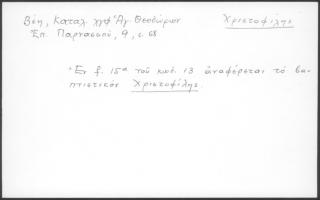 Βέη, Καταλ. χφφ Ἁγ. Θεοδώρων Χριστοφίλης
Ἐπ. Παρνασσοῦ, 9, σ. 68
Ἐν f. 15α τοῦ κώδ. 13 ἀναφέρεται τὸ βα-
πτιστικὸν Χριστοφίλης.